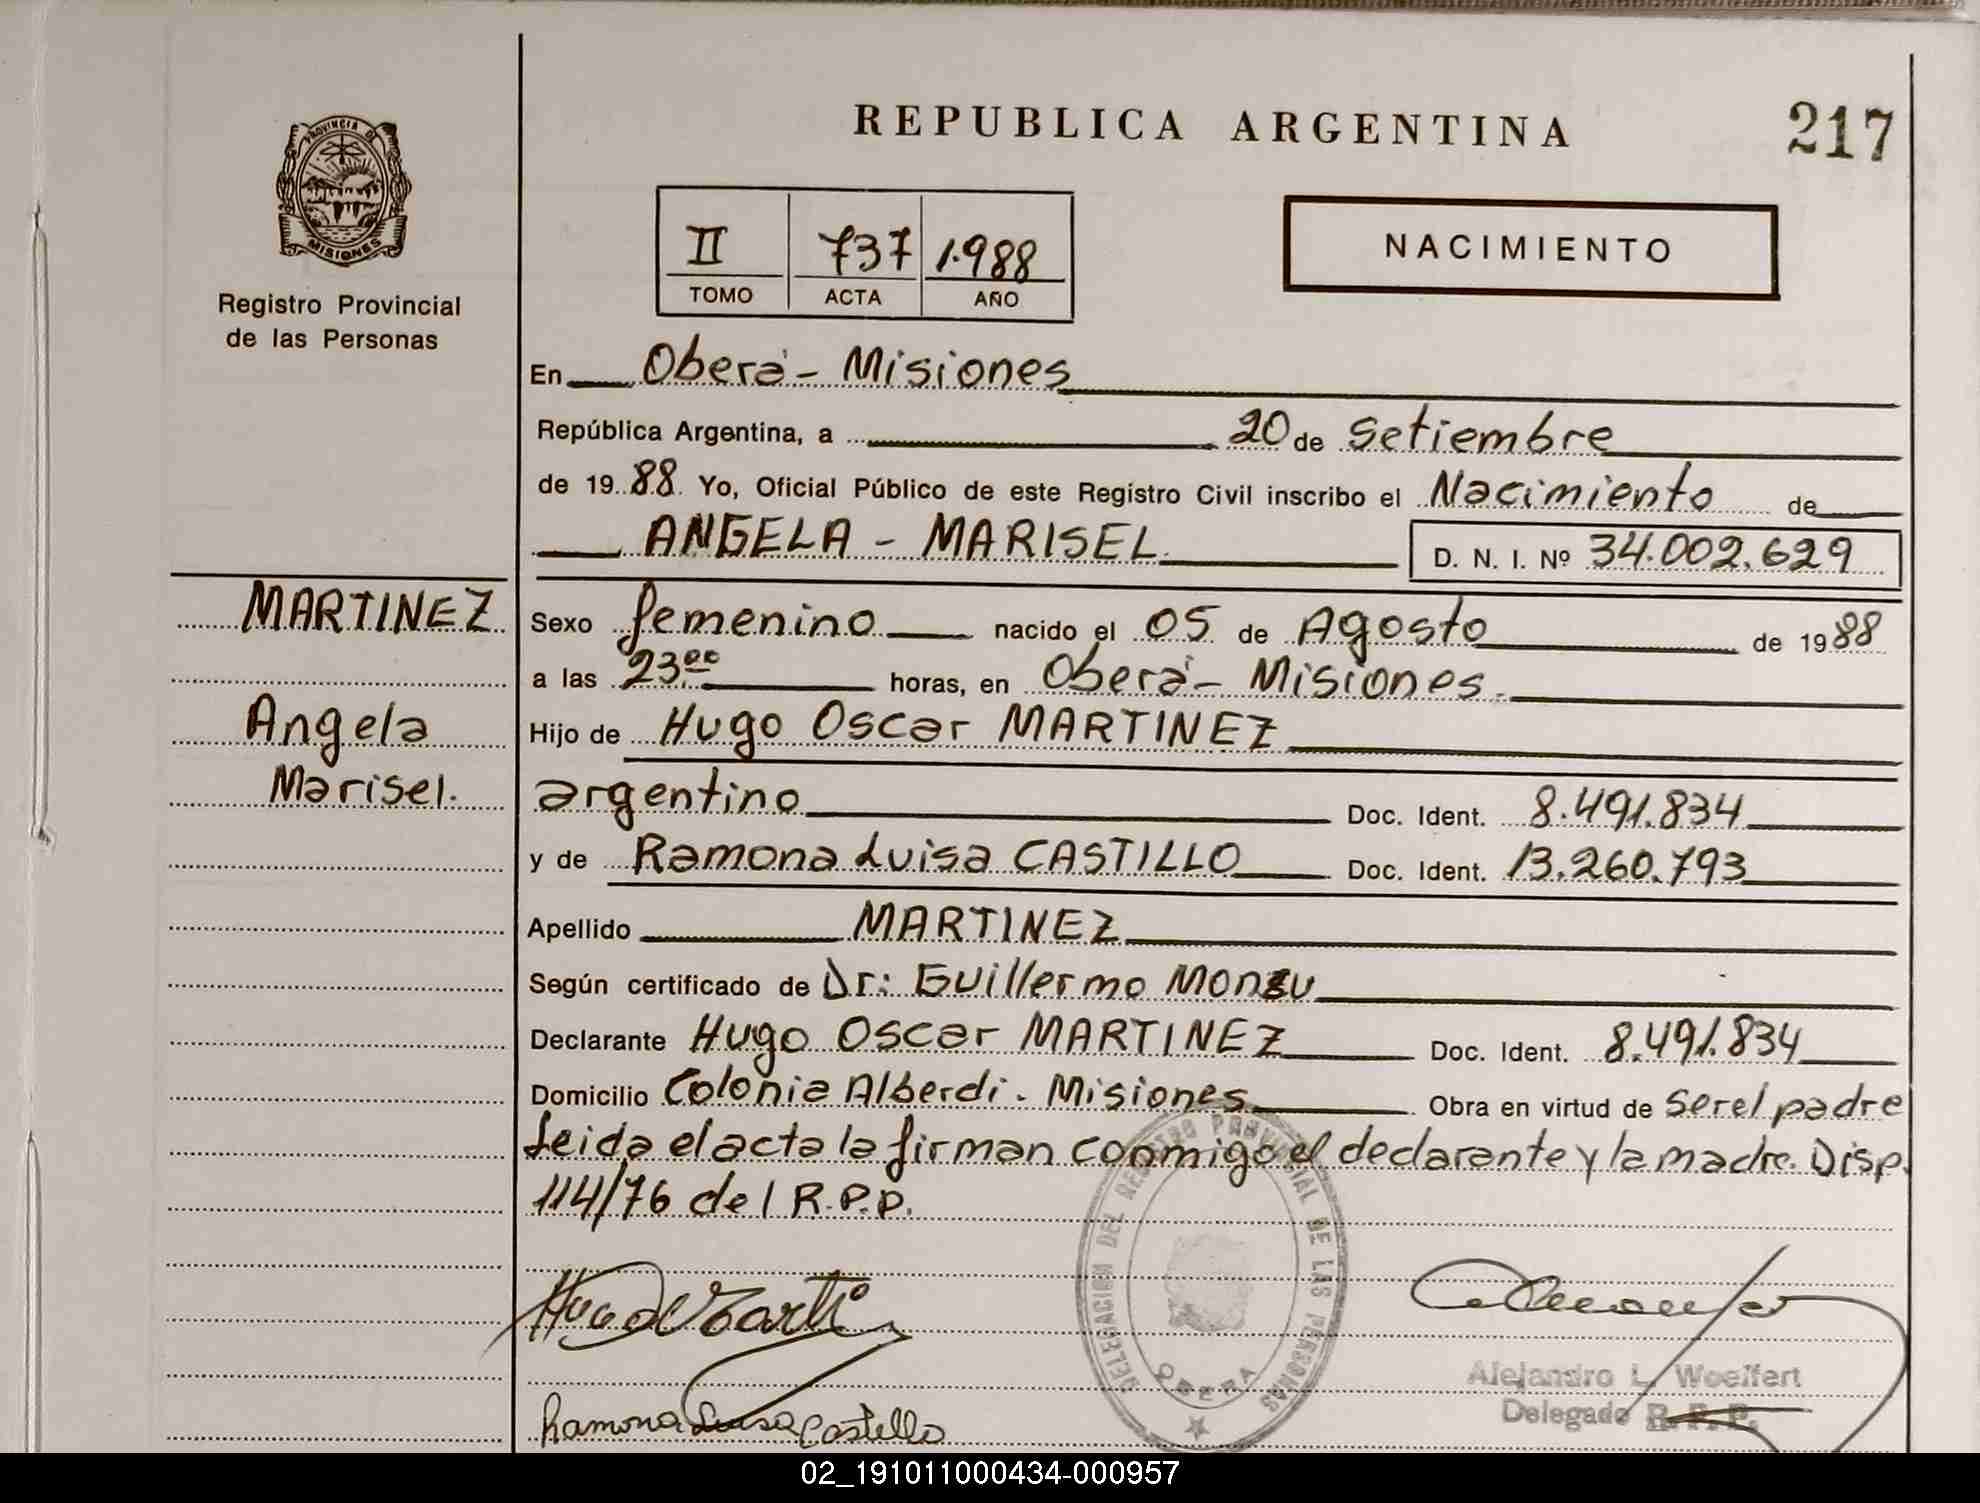 REPUBLICA ARGENTINA
217
PROVINCIA DE
MISIONES
Registro Provincial
de las Personas
II 737 1.988
TOMO ACTA AÑO
NACIMIENTO
En Oberá - Misiones
República Argentina, a 20 de Setiembre
de 19 88. Yo, Oficial Público de este Registro Civil inscribo el Nacimiento de
ANGELA - MARISEL D. N. I. Nº 34.002.629
MARTINEZ
Angela
Marisel.
Sexo femenino nacido el 05 de Agosto de 19 88
a las 23.00 horas, en Oberá - Misiones.
Hijo de Hugo Oscar MARTINEZ
argentino Doc. Ident. 8.491.834
y de Ramona Luisa CASTILLO Doc. Ident. 13.260.793
Apellido MARTINEZ
Según certificado de Dr: Guillermo Monzu
Declarante Hugo Oscar MARTINEZ Doc. Ident. 8.491.834
Domicilio Colonia Alberdi. Misiones Obra en virtud de ser el padre
Leida el acta la firman conmigo el declarante y la madre. Disp.
114/76 del R.P.P.
DELEGACION DEL REGISTRO PROVINCIAL DE LAS PERSONAS
OBERA
Ramona Luisa Castillo
Alejandro L. Woelfert
Delegado R. P. P.
02_191011000434-000957